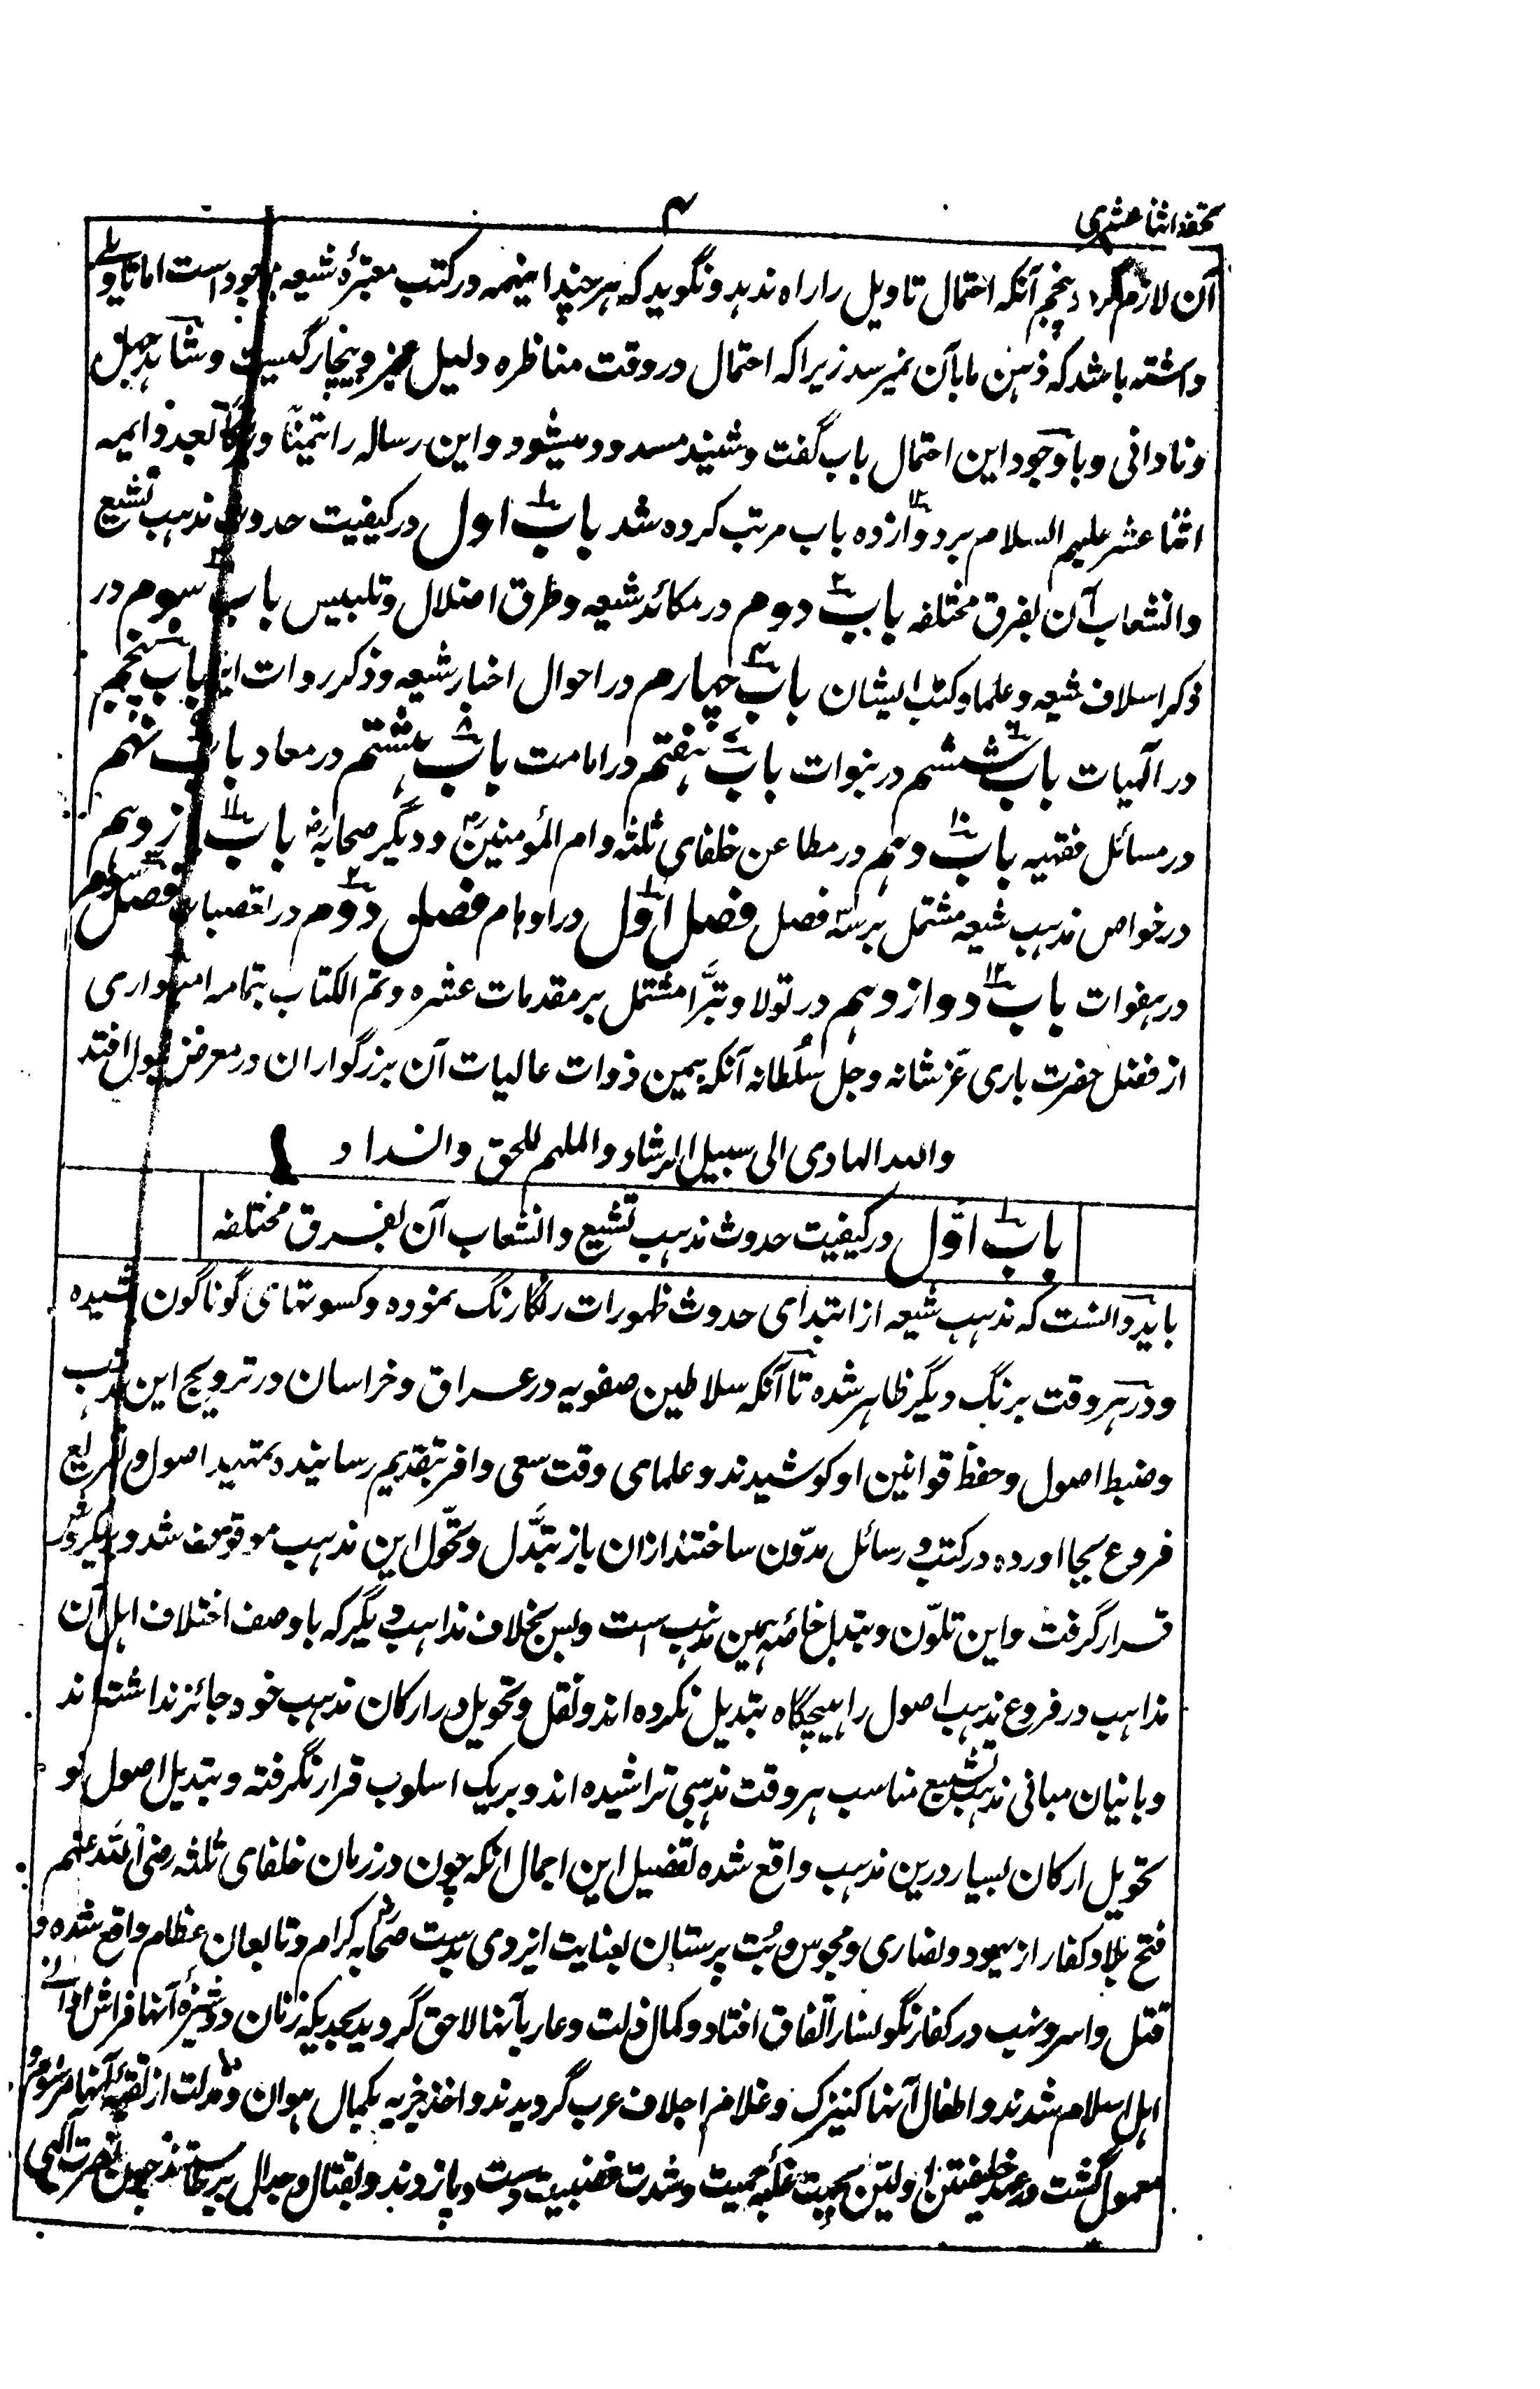 تحفه اثنا عشری
۴
آن لازم گردد پنجم آنکه احتمال تاویل را راه ندهد و نگوید که هر چند اینهمه در کتب معتبرهٔ شیعه موجود است اما تاویلے
داشته باشد که ذهن ما بآن نمیرسد زیرا که احتمال در وقت مناظره دلیل عجز و بیچارگیست و شاهد جهل
و نادانی و با وجود این احتمال باب گفت و شنید مسدود میشود و این رساله را تیمّنًا و تبرّکًا بعدد ائمه
اثنا عشر علیهم السلام بر دوازده باب مرتب کرده شد باب اول در کیفیت حدوث مذهب تشیع
و انشعاب آن بفرق مختلفه باب دوم در مکائد شیعه و طرق اضلال و تلبیس باب سوم در
ذکر اسلاف شیعه و علما و کتب ایشان باب چهارم در احوال اخبار شیعه و ذکر روات باب پنجم
در الٓهیات باب ششم در نبوات باب هفتم در امامت باب هشتم در معاد باب نهم
در مسائل فقهیه باب دهم در مطاعن خلفای ثلثه و ام المؤمنین و دیگر صحابه باب یازدهم
در خواص مذهب شیعه مشتمل بر سه فصل فصل اوّل در اوهام فصل دوم در تعصبات فصل سوم
در هفوات باب دوازدهم در تولا و تبّرا مشتمل بر مقدمات عشره و تم الکتاب بتمامه امیدواری
از فضل حضرت باری عزّ شانه و جل سلطانه آنکه بیمن ذوات عالیات آن بزرگواران در معرض قبول افتد
والله الهادی الی سبیل الرشاد والملهم للحق والسداد
باب اوّل در کیفیت حدوث مذهب تشیع و انشعاب آن بفرق مختلفه
باید دانست که مذهب شیعه از ابتدای حدوث ظهورات رنگارنگ نموده و کسوتهای گوناگون پوشیده
و در هر وقت برنگ دیگر ظاهر شده تا آنکه سلاطین صفویه در عراق و خراسان در ترویج این مذهب
و ضبط اصول و حفظ قوانین او کوشیدند و علمای وقت سعی وافر بتقدیم رسانیده تمهید اصول و تفریع
فروع بجا اورده در کتب و رسائل مدّون ساختند ازان باز تبدّل و تحوّل این مذهب موقوف شد و بیکروش
قرار گرفت و این تلوّن و تبدل خاصّه همین مذهب است و بس بخلاف مذاهب دیگر که با وصف اختلاف اهل آن
مذاهب در فروع مذهب اصول را هیچگاه تبدیل نکرده اند و نقل و تحویل در ارکان مذهب خود جائز نداشته اند
و بانیان مبانی مذهب تشیع مناسب هر وقت مذهبی تراشیده اند و بریک اسلوب قرار نگرفته و تبدیل اصول و
تحویل ارکان بسیار درین مذهب واقع شده تفصیل این اجمال انکه چون در زمان خلفای ثلثه رضی الله عنهم
فتح بلاد کفار از یهود و نصاری و مجوس و بُت پرستان بعنایت ایزدی بدست صحابه کرام و تابعان عظام واقع شده و
قتل و اسر و نهب در کفار نگونسار اتفاق افتاد و کمال ذلت و عار بآنها لاحق گردید بحدیکه زنان دوشیزه آنها فراش ادانے
اهل اسلام شدند و اطفال آنها کنیزک و غلام اجلاف عرب گردیدند و اخذ جزیه بکمال هوان و مذلت از بقیه آنها مرسوم و
معمول گشت در عهد خلیفتین اولین بجهت غلبه حمیت و شدت عصبیت دست و پا زدند و بقتال و جدال برخاستند چون نصرت الٓهی